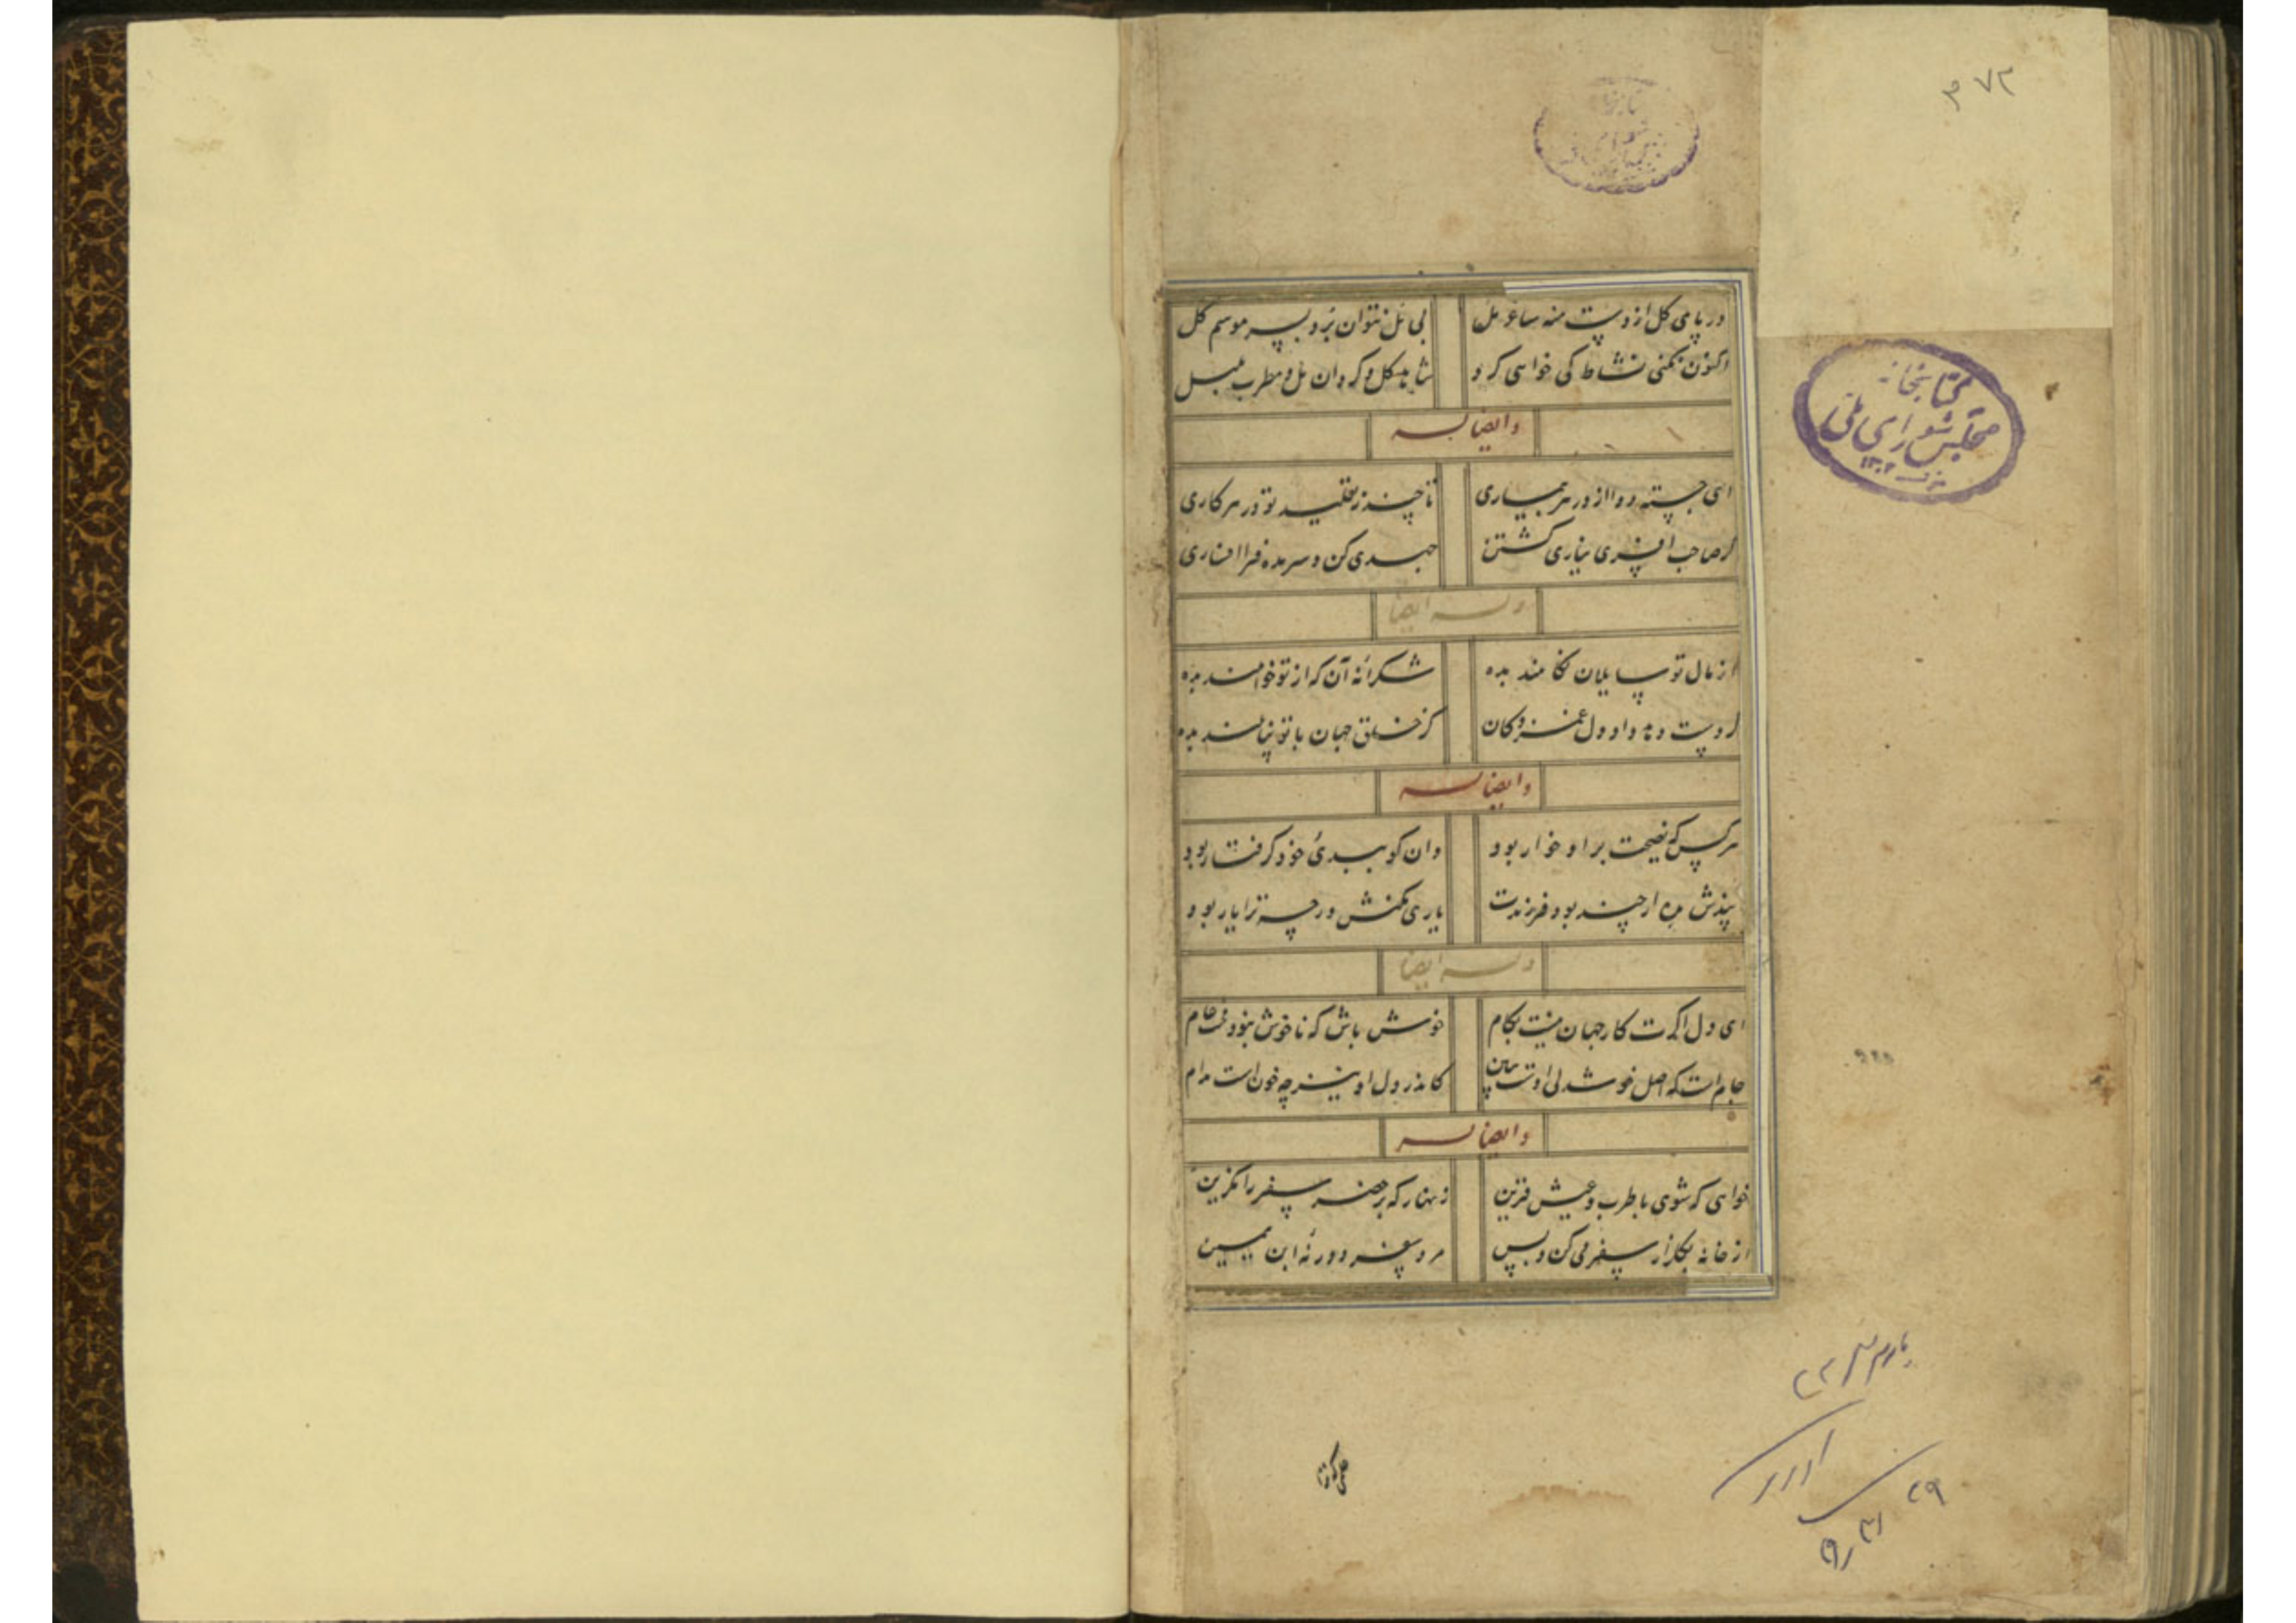 ۷۲
کتابخانه
مجلس شورای ملی
۱۳۰۲
در پای گل از دست منه ساغر مل
بی مل نتوان برد بسر موسم گل
اکنون نکنی نشاط کی خواهی کرد
شاهد گل و گردان مل و مطرب بلبل
وایضا له
ای جسته دوا از در هر بیماری
تا چند ز تقلید تو در هر کاری
گر صاحب افسری نیاری گشتن
جهدی کن و سر مده فرا افساری
وله ایضا
از مال تو سایلان نخواهند بده
شکرانه آن که از تو خواهند بده
گر دست دهد داد دل غمزدگان
کز خلق جهان با تو نپایند بده
وایضا له
هر کس که نصیحت بر او خوار بود
وان کو ببدی خود گرفتار بود
پندش مده ار چند بود فرزندت
یاری مکنش ورچه ترا یار بود
وله ایضا
ای دل اگرت کار جهان نیست بکام
خوش باش که ناخوش نبود جز غم خام
جام است که اصل خوشدلی اوست ببین
کاندر دل او نیز چه خون است مدام
وایضا له
خواهی که شوی با طرب و عیش قرین
زنهار که بر حضر سفر را مگزین
از خانه بگلزار سفر می کن و بس
مرد سفر دور نه ابن یمین